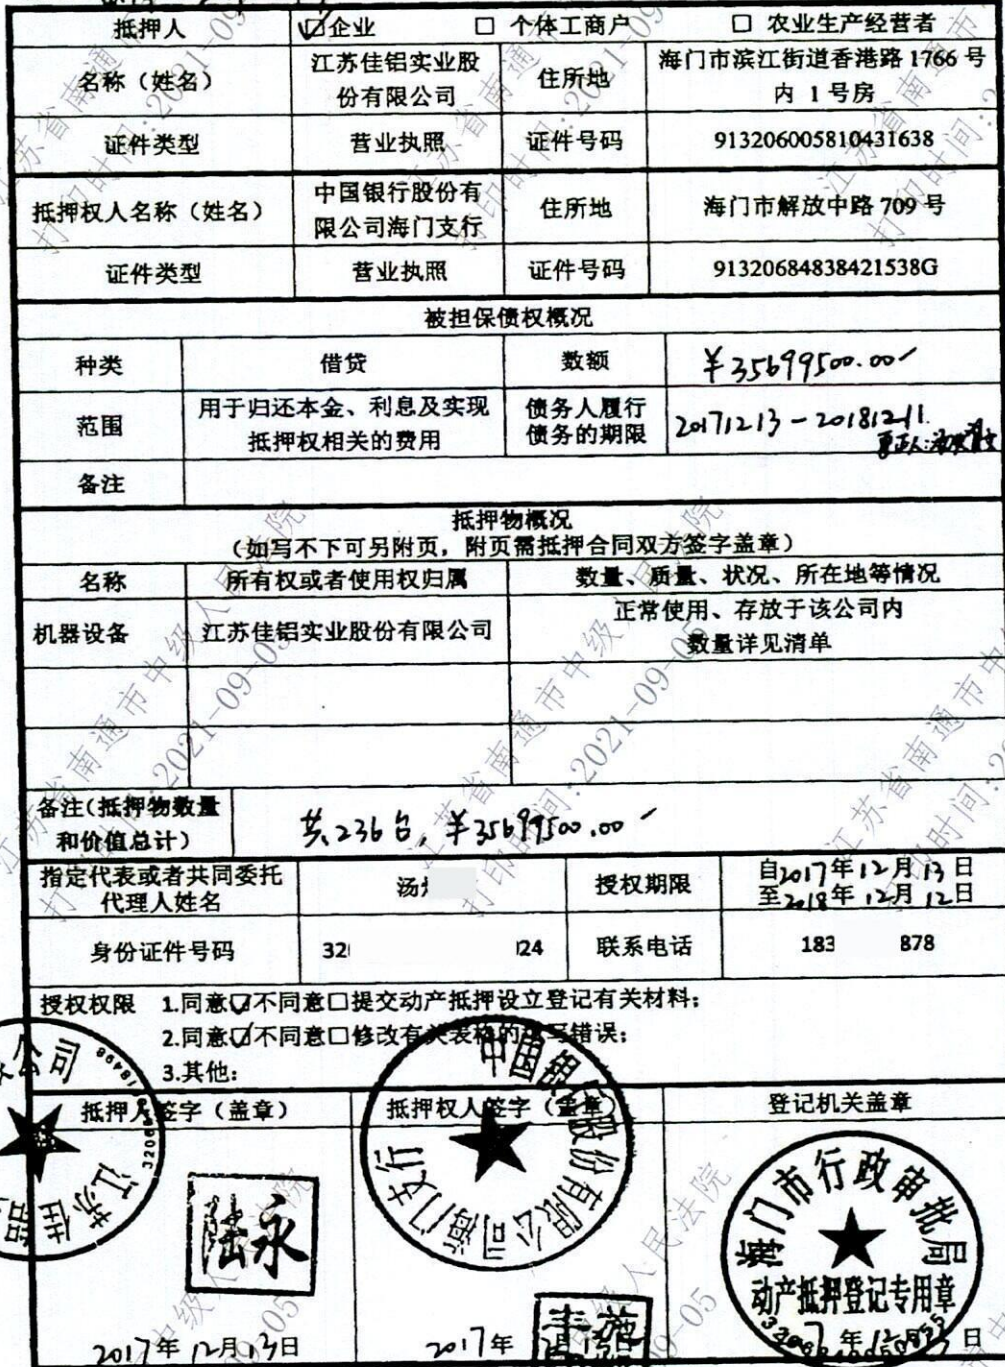 抵押人 ☑企业 □ 个体工商户 □ 农业生产经营者
名称（姓名） 江苏佳铝实业股份有限公司 住所地 海门市滨江街道香港路 1766 号内 1 号房
证件类型 营业执照 证件号码 913206005810431638
抵押权人名称（姓名） 中国银行股份有限公司海门支行 住所地 海门市解放中路 709 号
证件类型 营业执照 证件号码 91320684838421538G
被担保债权概况
种类 借贷 数额 ￥35699500.00
范围 用于归还本金、利息及实现抵押权相关的费用 债务人履行债务的期限 20171213-20181211.
备注
抵押物概况
（如写不下可另附页，附页需抵押合同双方签字盖章）
名称 所有权或者使用权归属 数量、质量、状况、所在地等情况
机器设备 江苏佳铝实业股份有限公司 正常使用、存放于该公司内
数量详见清单
备注（抵押物数量和价值总计） 共236台，￥35699500.00
指定代表或者共同委托代理人姓名 汤 授权期限 自2017年12月13日
至2018年12月12日
身份证件号码 32 024 联系电话 183 878
授权权限 1.同意☑不同意□提交动产抵押设立登记有关材料；
2.同意☑不同意□修改有关表格的填写错误；
3.其他：
抵押人签字（盖章） 抵押权人签字（盖章） 登记机关盖章
公司
江苏佳铝
陆永
中国银行股份有限公司海门支行
海门市行政审批局
动产抵押登记专用章
2017年12月13日 2017年 月13日 7年12月 日
江苏省南通市中级人民法院
打印时间:2021-09-05